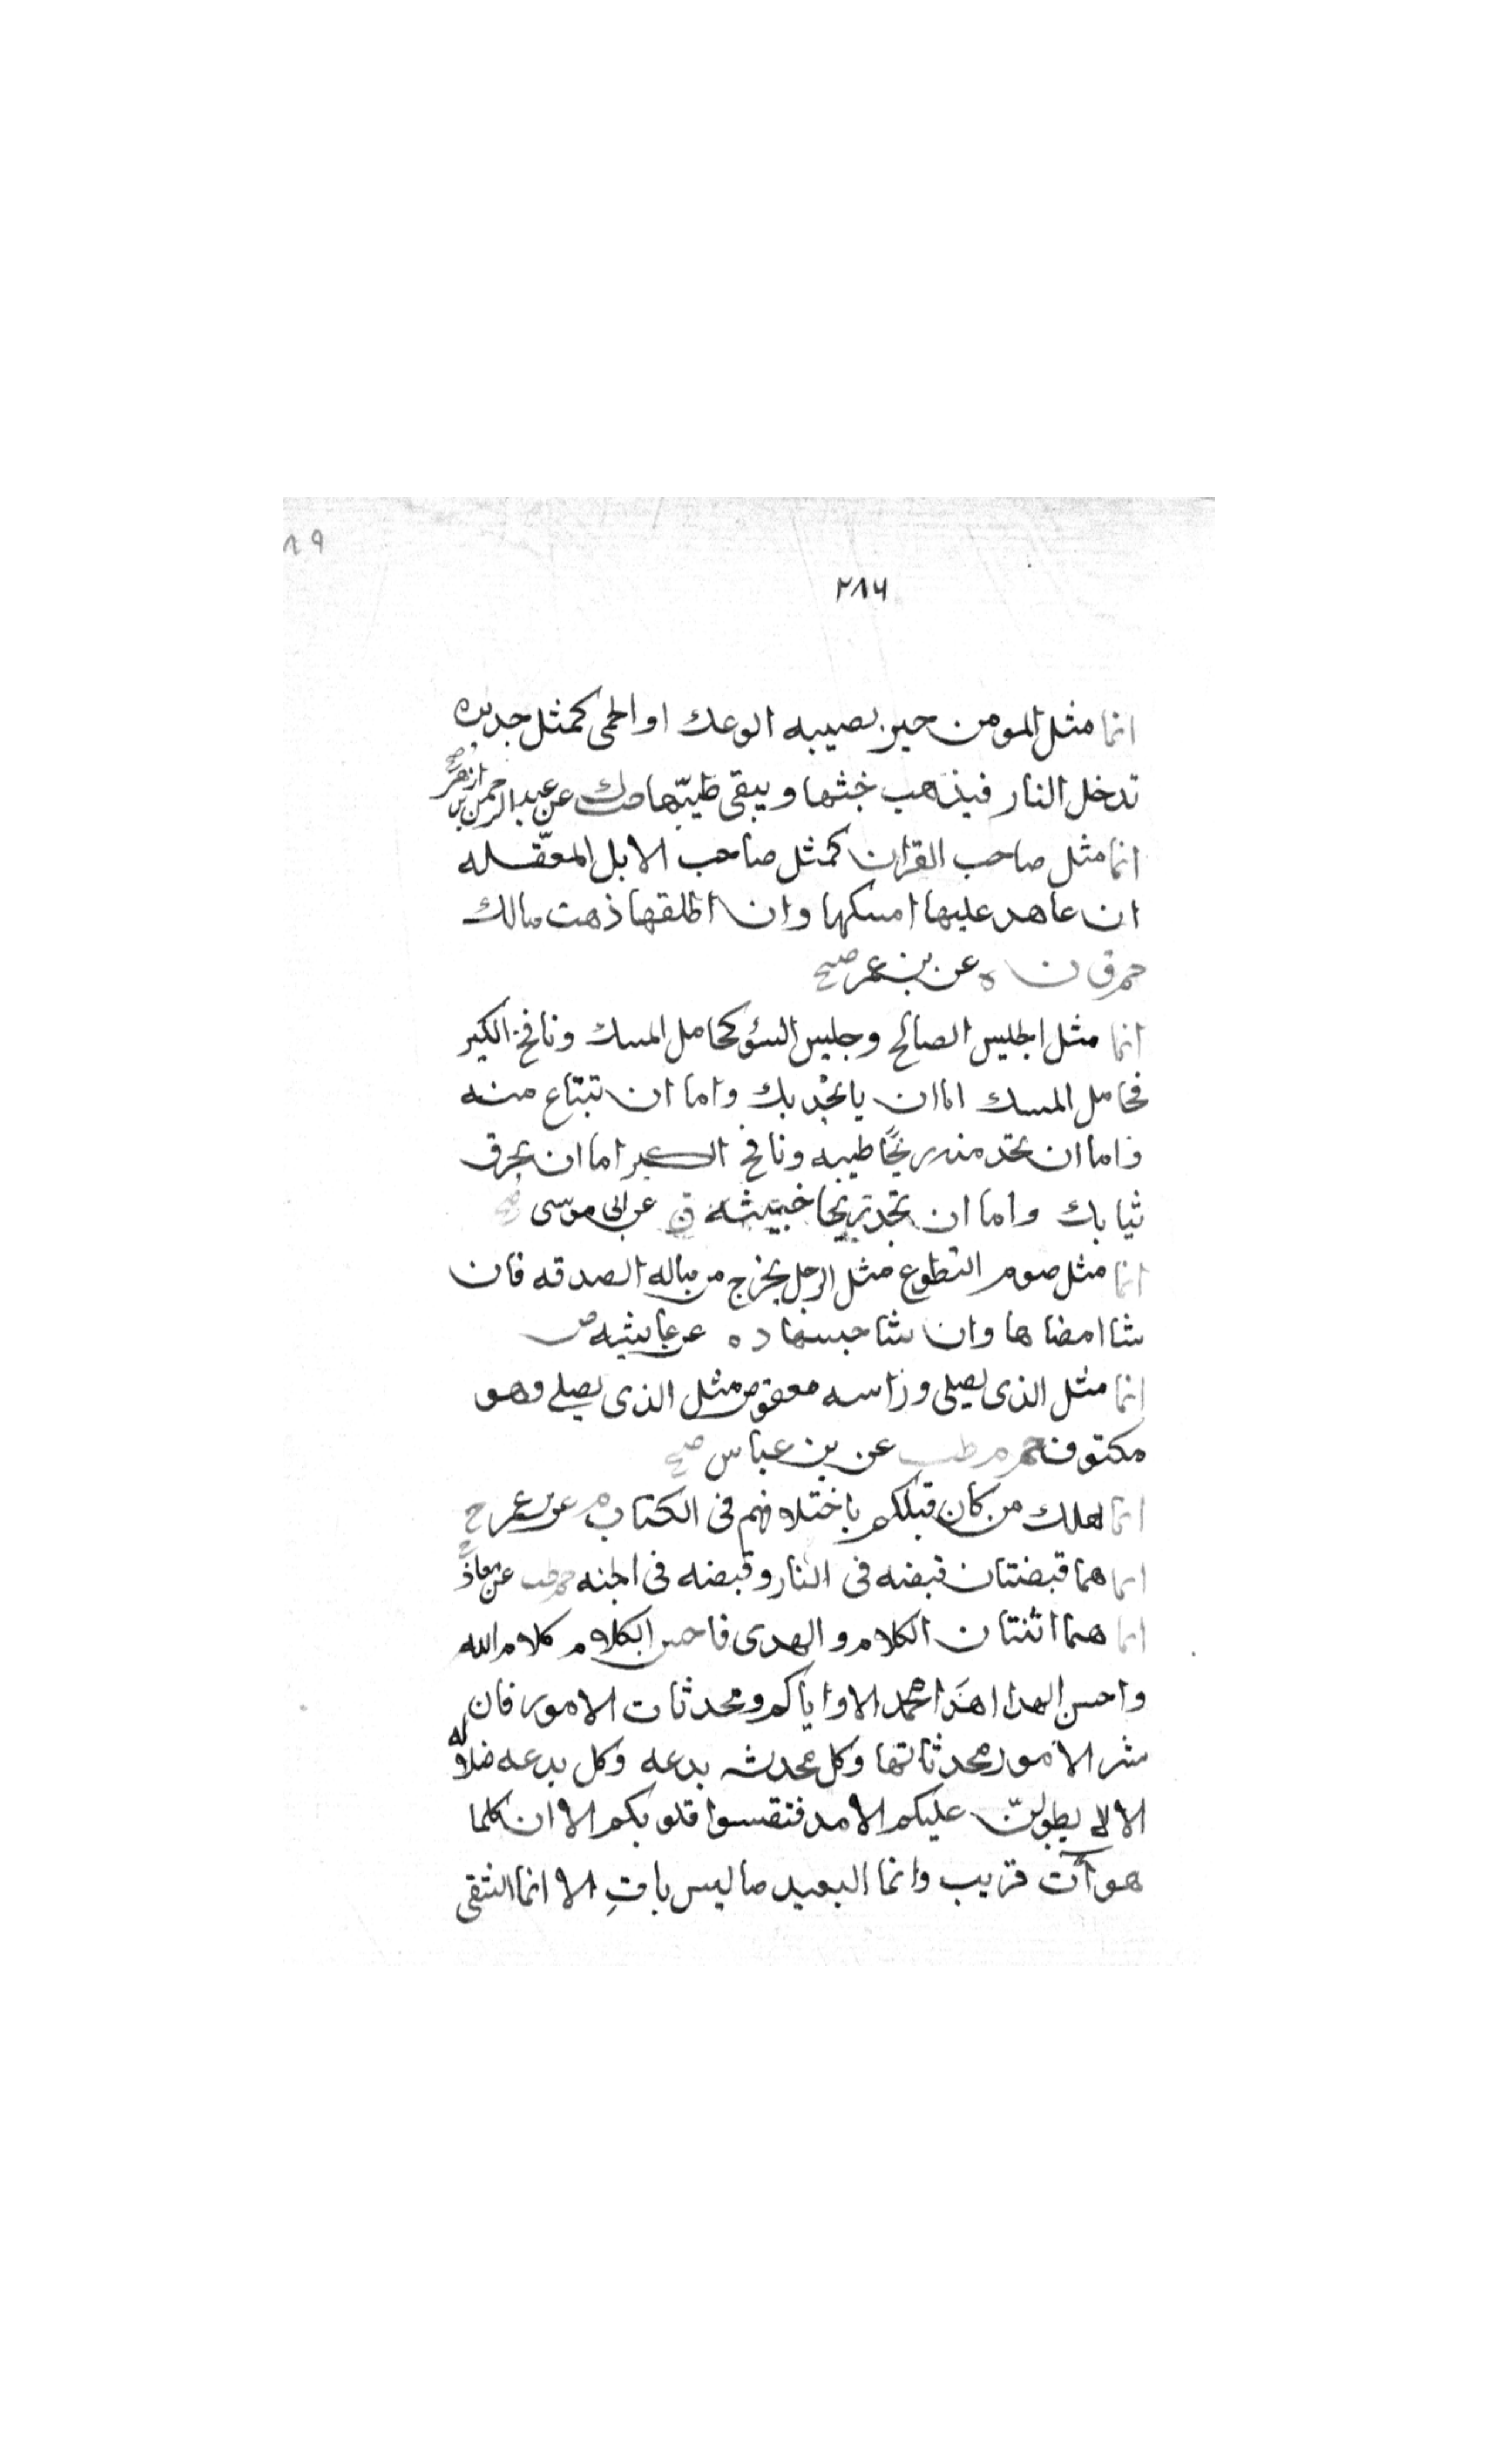 ٨٩
٢٨٦
انما مثل المومن حين يصيبه الوعك او الحمى كمثل حديده
تدخل النار فيذهب خبثها ويبقى طيّبها طب ك عن عبد الرحمن بن ازهر صح
انما مثل صاحب القران كمثل صاحب الابل المعقّله
ان عاهد عليها امسكها وان اطلقها ذهبت مالك
حم ق ن ه عن بن عمر صح
انما مثل الجليس الصالح وجليس السؤ كحامل المسك ونافخ الكير
فحامل المسك اما ان يا يحذيك واما ان تبتاع منه
واما ان تجد منه ريحًا طيبه ونافخ الكير اما ان يحرق
ثيابك واما ان تجد ريحا خبيثه ق عن ابى موسى صح
انما مثل صوم التطوع مثل الرجل يخرج من ماله الصدقه فان
شا امضاها وان شا حبسها ن ه عن عايشه ض
انما مثل الذى يصلى وراسه معقوص مثل الذى يصلى وهو
مكتوف حم م طب عن بن عباس صح
انما هلك من كان قبلكم باختلافهم فى الكتاب م عن بن عمر ح
انما هما قبضتان قبضه فى النار وقبضه فى الجنه حم طب عن معاذ ح
انما هما اثنتان الكلام والهدى فاحسن الكلام كلام الله
واحسن الهدا هدا محمد الا واياكم ومحدثات الامور فان
شر الامور محدثاتها وكل محدثه بدعه وكل بدعه ضلاله
الا لا يطولنّ عليكم الامد فتقسوا قلوبكم الا ان كلما
هو آت قريب وانما البعيد ما ليس باتٍ الا انما الشقى